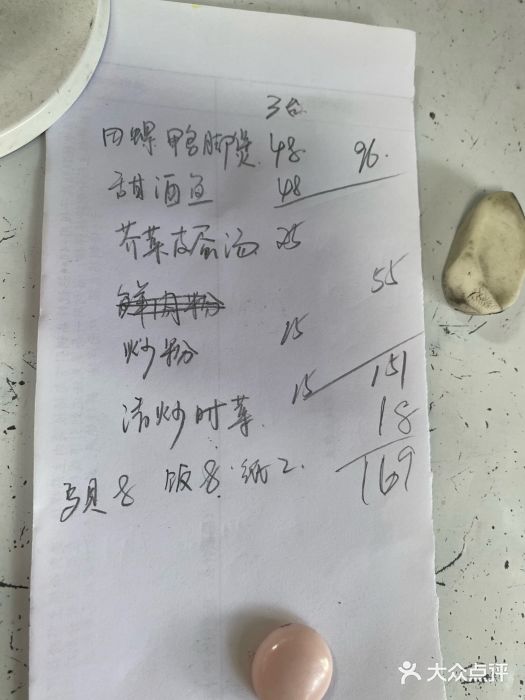 3台
田螺鸭脚煲 48 96
甜酒鱼 48
芥菜皮蛋汤 25
55
炒粉 15
清炒时菜 15 151
18
贝8 饭8 纸2 169
大众点评